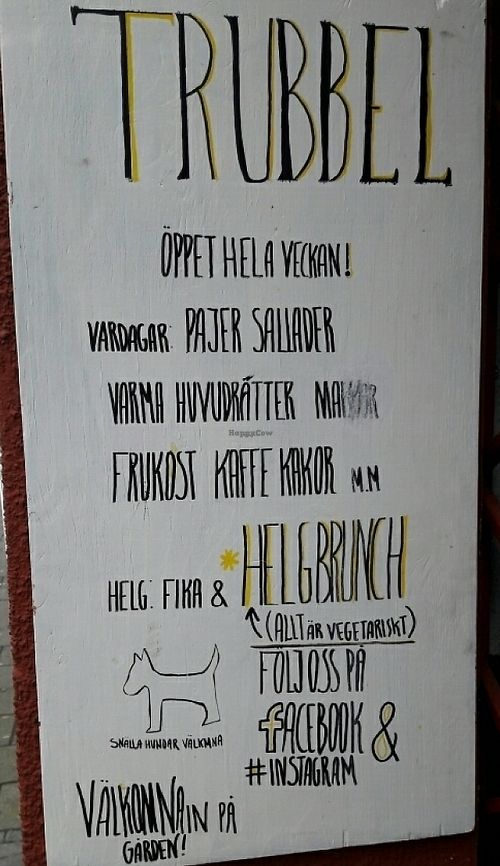 TRUBBEL
ÖPPET HELA VECKAN!
VARDAGAR: PAJER SALLADER
VARMA HUVUDRÄTTER
HappyCow
FRUKOST KAFFE KAKOR M.M
HELG: FIKA & *HELGBRUNCH
(ALLT ÄR VEGETARISKT)
FÖLJ OSS PÅ
FACEBOOK &
#INSTAGRAM
SNÄLLA HUNDAR VÄLKMNA
VÄLKOMNA IN PÅ
GÅRDEN!